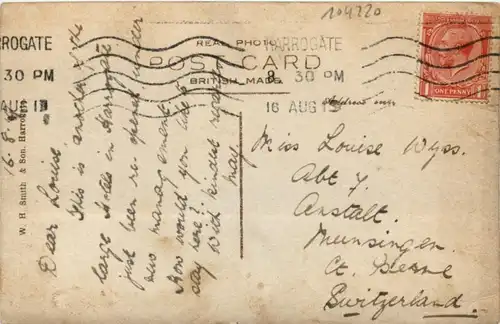 104220
HARROGATE
8 30 PM
16 AUG 1
ROGATE
30 PM
AUG 1
REAL PHOTO
POST CARD
BRITISH MADE
Address only
ONE PENNY
W. H. Smith & Son, Harrogate
16.8.
Dear Louise
This is another of the
large Hotels in Harrogate
just been re-opened under
new management.
How would you like to
stay here?
With kindest regards
May.
Miss Louise Wyss.
Abt 7.
Anstalt.
Munsingen.
Ct. Berne
Switzerland.